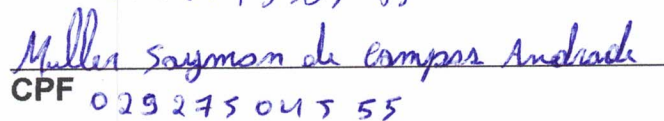 Muller Saymon de Campos Andrade
CPF 029275045 55